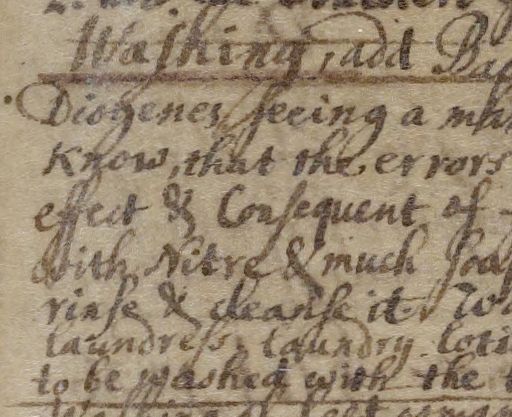 Washing, add Ba
Diogenes, seeing a ma
Know, that the errors
effect & Consequent of
with Nitre & much soa
rinse & cleanse it. Wa
laundress, laundry. loti
to be washed with the